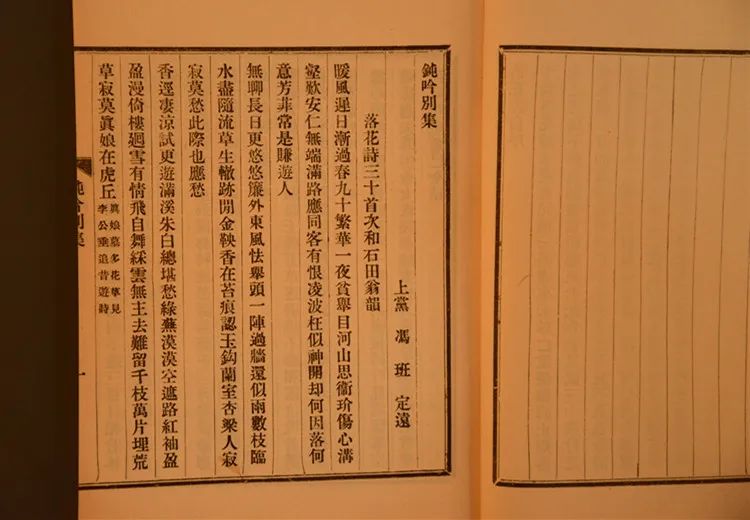 鈍吟別集
上黨 馮班 定遠
落花詩三十首次和石田翁韻
暖風遲日漸過春九十繁華一夜貧舉目河山思衞玠傷心溝
壑歎安仁無端滿路應同客有恨凌波枉似神開却何因落何
意芳菲常是賺遊人
無聊長日更悠悠簾外東風怯舉頭一陣過牆還似雨數枝臨
水盡隨流草生轍跡閒金鞅香在苔痕認玉鈎蘭室杏梁人寂
寂莫愁此際也應愁
香逕凄涼試更遊滿溪朱白總堪愁綠蕪漠漠空遮路紅袖盈
盈漫倚樓廻雪有情飛自舞綵雲無主去難留千枝萬片埋荒
草寂莫眞娘在虎丘眞娘墓多花草見
李公垂追昔遊詩
鈍吟別集
一